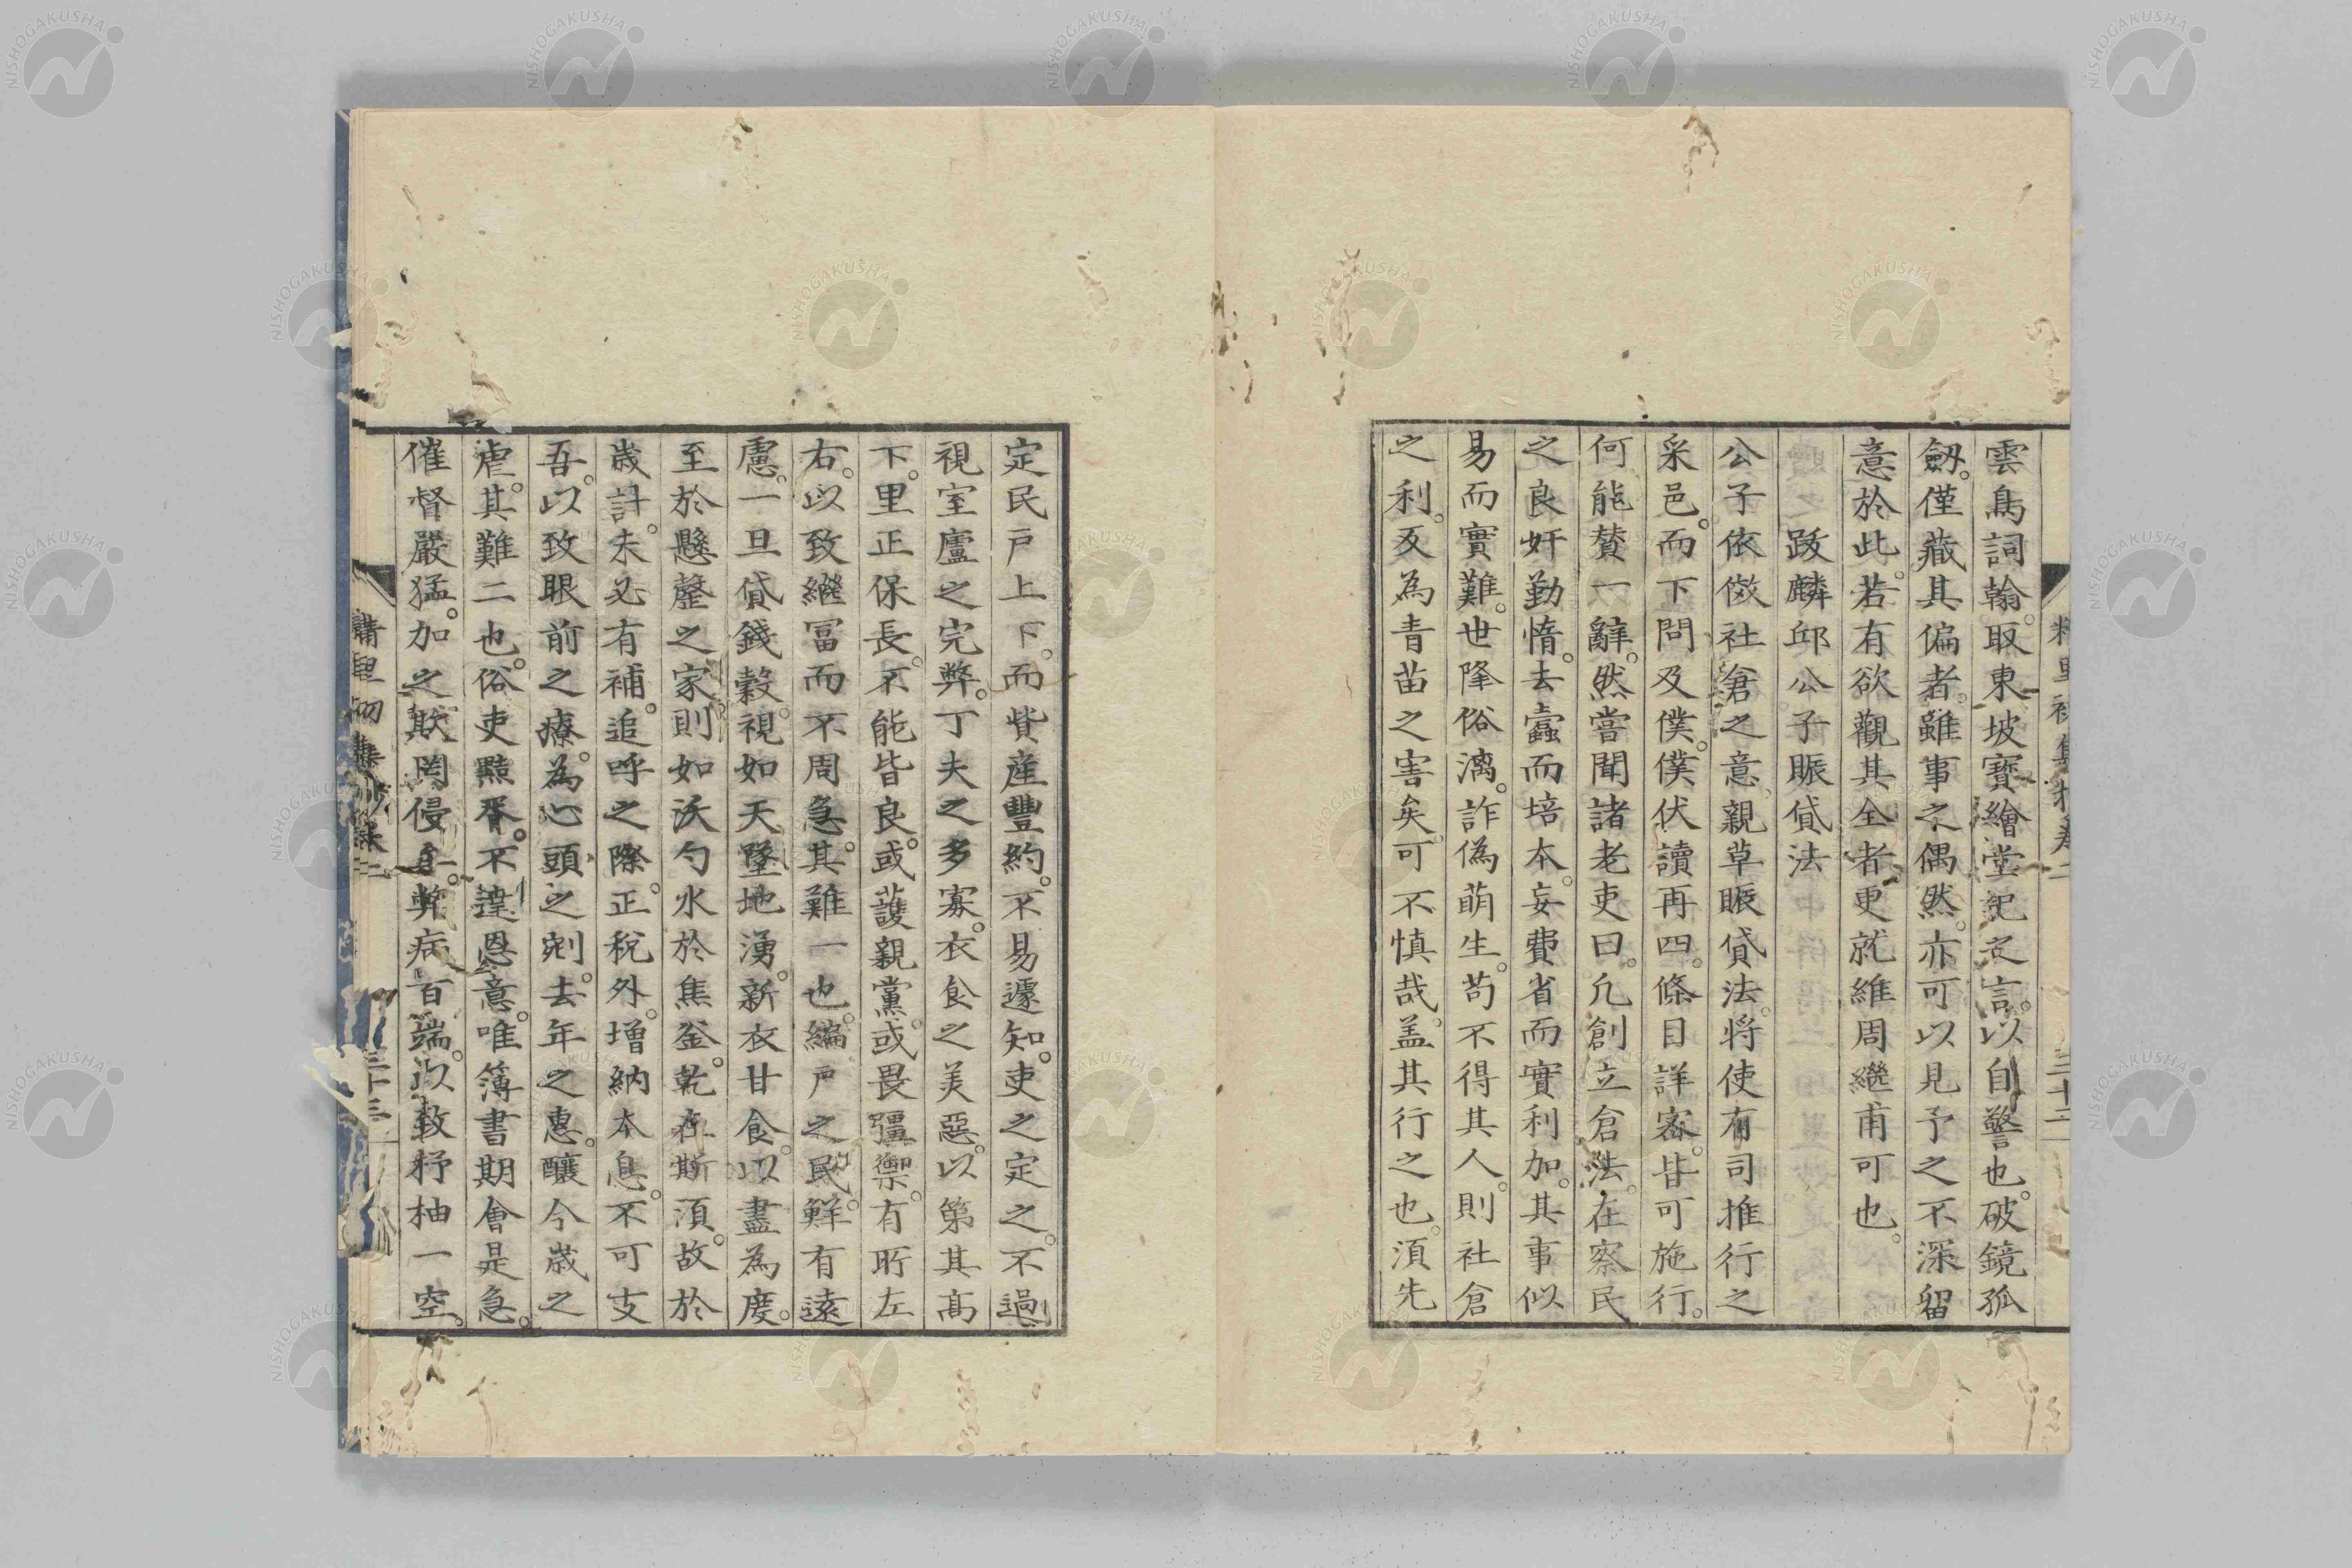 雲鳥詞翰。取東坡寶繪堂記之言。以自警也。破鏡孤
劔。僅藏其偏者。雖事之偶然。亦可以見予之不深留
意於此。若有欲觀其全者。更就維周繼甫可也。
跋麟邱公子賑貸法
公子依倣社倉之意親草賑貸法。将使有司推行之
采邑。而下問及僕。僕伏讀再四。條目詳密。皆可施行。
何能賛一辭。然嘗聞諸老吏曰。凡創立倉法。在察民
之良奸勤惰。去蠹而培本。妄費省而實利加。其事似
易而實難。世降俗漓。詐偽萌生。苟不得其人。則社倉
之利。反為青苗之害矣。可不慎哉。盖其行之也。須先
定民戸上下。而貲産豐約。不易遽知。吏之定之。不過
視室廬之完弊。丁夫之多寡。衣食之美惡。以第其高
下。里正保長。不能皆良。或護親黨。或畏彊禦。有所左
右。以致繼冨而不周急。其難一也。編戸之民。鮮有遠
慮。一旦貸錢穀。視如天墜地湧。新衣甘食。以盡為度。
至於懸罄之家。則如沃勺水於焦釜。乾在斯須。故於
歳計。未必有補。追呼之際。正税外。増納本息。不可支
吾。以致眼前之療。為心頭之剜。去年之惠。釀今歳之
虐。其難二也。俗吏黠胥。不達恩意。唯簿書期會是急。
催督嚴猛。加之欺罔侵牟。弊病百端。以致杼柚一空。
精里初集抄卷二
三十二
精里初集抄
三十三
NISHOGAKUSHA